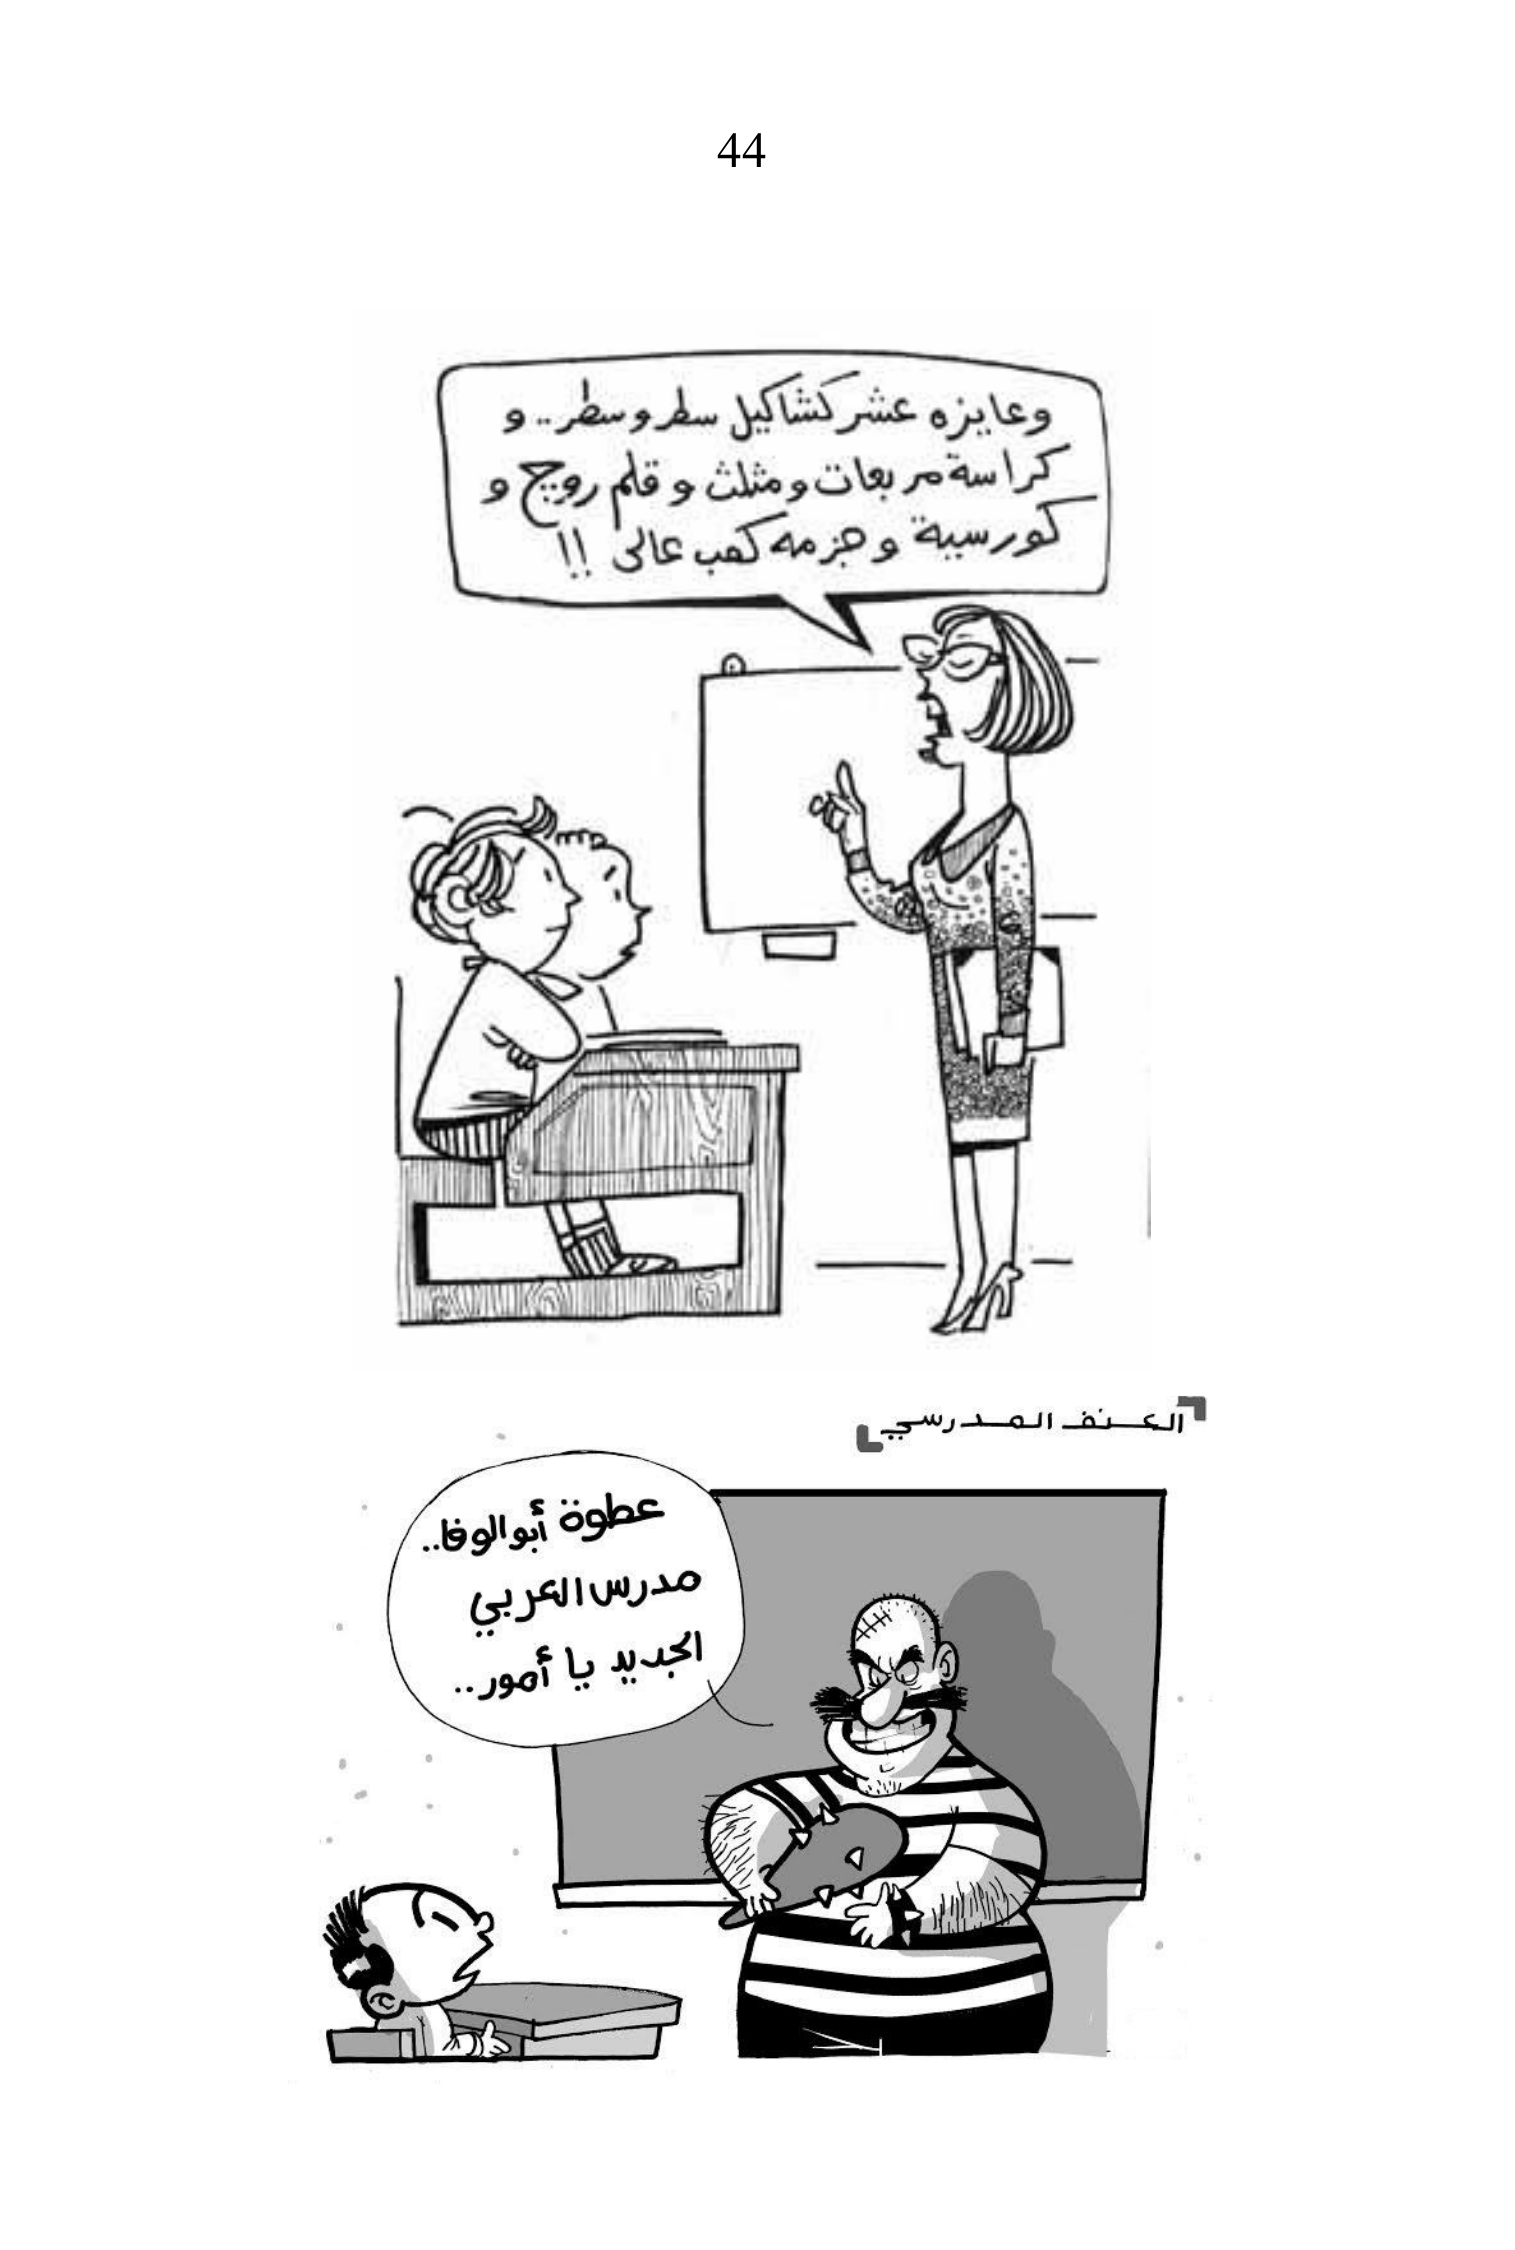 44
وعايزه عشر كشاكيل سطر وسطر.. و
كراسة مربعات ومثلث و قلم روچ و
كورسيه و جزمه كعب عالى !!
العنف المدرسي
عطوة أبو الوفا..
مدرس العربي
الجديد يا أمور..